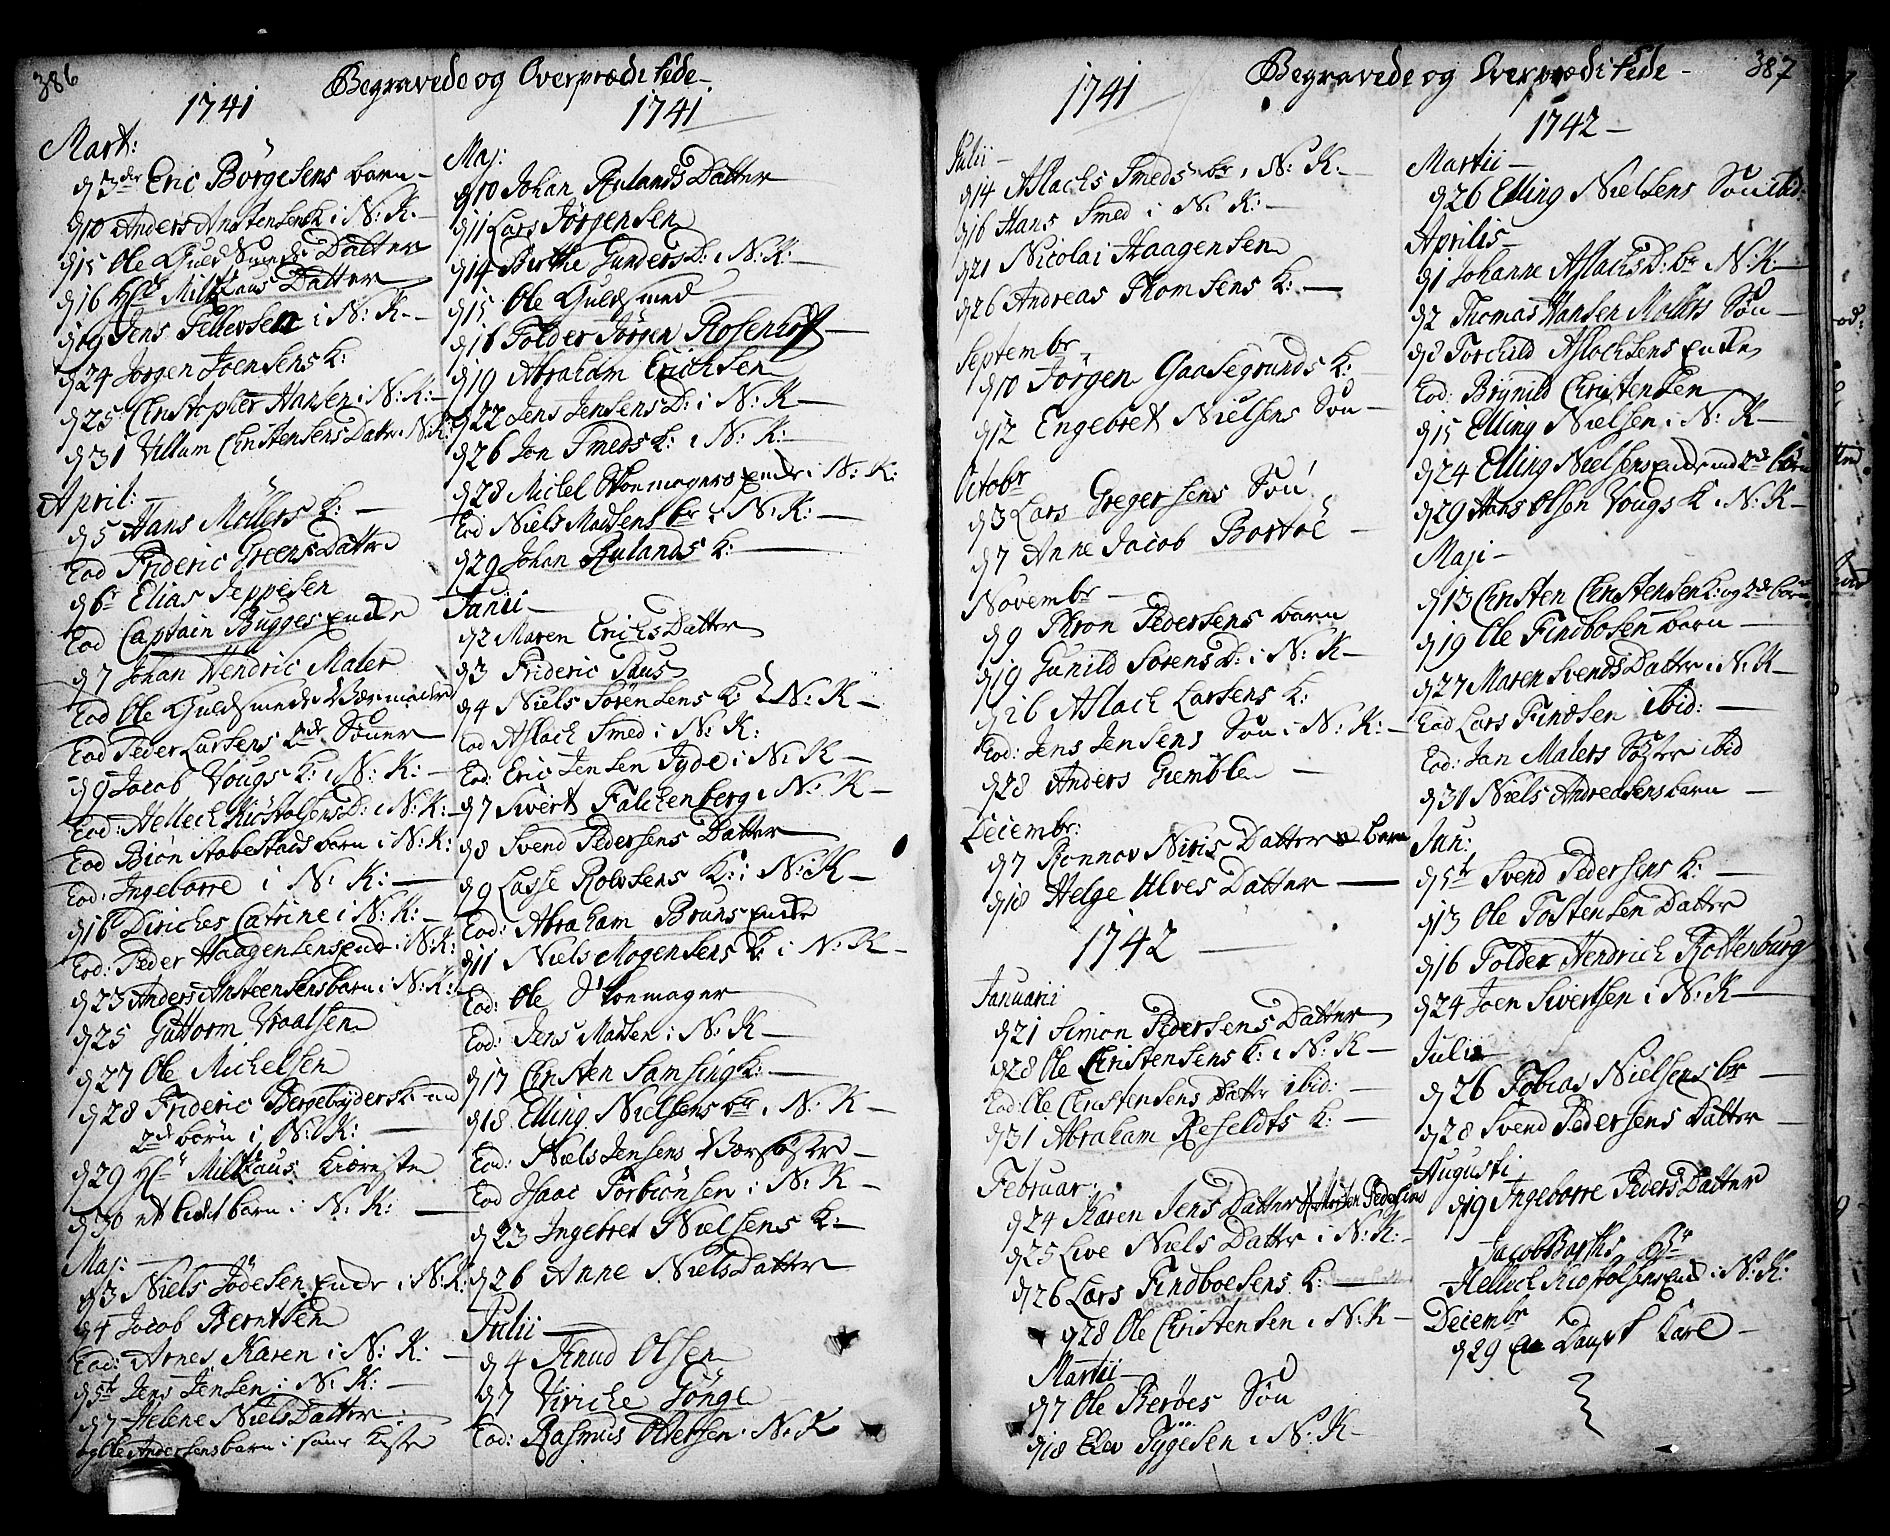 386
Begravede og Overprædikede
1741
Mart:
d 3der Eric Börgesens barn
d 10 Anders Anstensens K i N: K:
d 15 Ole Guldsmeds Datter
d 16 Hr Miltzaus Datter
d 19 Jens Pettersen i N: K
d 24 Jörgen Joensens K:
d 25 Christopher Hansen i N: K:
d 31 Villum Christensens Datr i N: K:
April:
d 5 Hans Möllers K:
Eod Frideric Greens Datter
d 6 Elias Jeppesen
Eod Captain Bugges Encke
d 7 Johan Hendric Maler
Eod Ole Guldsmeds Værmoder
Eod Peder Larsens 2de Sönner
d 9 Jacob Vougs K: i N: K:
Eod: Hellech Kiöstolsens D: i N: K:
Eod Biön Stabestads barn i N: K:
Eod: Ingeborre i N: K:
d 16 Diriches Catrine i N: K:
Eod: Peder Haagensens Enck i N: K:
d 23 Anders Ansteensens barn i N: K:
d 25 Guttorm Vraalsen
d 27 Ole Michelsen
d 28 Frideric Bergebyders K: med
2de börn i N: K:
d 29 Hr Miltzaus Kiæreste
d 30 et lidet barn i N: K:
Maj:
d 3 Niels Jödesen Encke i N: K:
d 4 Jacob Berntsen
Eod: Arnes Karen i N: K:
d 5t Jens Jensen i N: K:
d 7 Helene Niels Datter
og Ole Andersens barn i samme Kiste
1741
Maj:
d 10 Johan Rulands Datter
d 11 Lars Jörgensen
d 14 Birthe Gunders D: i N: K:
d 15 Ole Guldsmed
d 16 Tolder Jörgen Rosenhoff
d 19 Abraham Erichsen
d 22 Jens Jensens D: i N: K
d 26 Jon Smeds K: i N: K:
d 28 Michel Skoemagers Encke i N: K:
Eod Niels Madsens br i N: K:
d 29 Johan Rulands K:
Junii
d 2 Maren Erichs Datter
d 3 Frideric Skus
d 4 Niels Sörensens K: i N: K
Eod Aslach Smed i N: K:
Eod: Eric Jensen Jyde i N: K
d 7 Sivert Falckenberg i N: K
d 8 Svend Pedersens Datter
d 9 Lasse Rolvsens K: i N: K
Eod: Abraham Bruns Encke
d 11 Niels Mogensens K: i N: K
Eod: Ole Skoemager
Eod: Jens Matsen i N: K
d 17 Christen Samsing K:
d 18 Elling Nielsens br i N: K
Eod: Niels Jensens Værsöster
Eod Isaac Torbiönsen i N: K
d 23 Ingebret Nielsens K:
d 26 Anne Niels Datter
Julii
d 4 Knud Olsen
d 7 Viriche Gönge
Eod: Rasmus Oversen i N: K
387
Begravede og Overprædikede
1741
Julii
d 14 Aslachs Smeds br i N: K:
d 16 Hans Smed i N: K:
d 21 Nicolai Haagensen
d 26 Andreas Thomsens K:
Septembr
d 10 Jörgen Gaasegrunds K:
d 12 Engebret Nielsens Sön
Octobr
d 3 Lars Gregersens Sön
d 7 Anne Jacob Bortöe
Novembr
d 9 Thron Pedersens barn
d 19 Gunild Sörens D: i N: K
d 26 Aslach Larsens K:
Eod: Jens Jensens Sön i N: K:
d 28 Anders Gemble
Decembr:
d 7 Ronnov Niris Datters barn
d 18 Helge Ulves Datter
1742
Januarii
d 21 Simon Pedersens Datter
d 28 Ole Christensens K: i N: K
Eod: Ole Christensens Datter ibid:
d 31 Abraham Refeldts K:
Februar:
d 24 Karen Jens Datter Morten Pedersens
d 25 Live Niels Datter i N: K:
d 26 Lars Findboesens K:
d 28 Ole Christensen i N: K
Martii
d 7 Ole Beröes Sön
d 18 Elev Tygesen i N: K
1742
Martii
d 26 Elling Nielsens Sön ibid:
Aprilis
d 1 Johanne Aslachs D: br N: K
d 2 Thomas Hansen Molers Sön
d 8 Torchild Aslochsens Encke
Eod: Brynild Christensen
d 15 Elling Nielsen i N: K
d 24 Elling Nielsens Encke med 2de börn
d 29 Hans Olsen Vougs K i N: K
Maji
d 13 Christen Christensens K: og 2de börn
d 19 Ole Findbosen barn
d 27 Maren Svends Datter i N: K
Eod Lars Findsen ibid:
Eod: Jan Malers Söster ibid
d 31 Niels Andreasens barn
Jun:
d 5t Svend Pedersens K:
d 13 Ole Tostensen Datter
d 16 Tolder Hendrich Rottenburg
d 24 Joen Sivertsen i N: K
Julii
d 26 Tobias Nielsens br
d 28 Svend Pedersens Datter
Augusti
d 19 Ingeborre Peders Datter
Jacob Barths Br
Hellech Kiostolsens Encke i N: K:
Decembr
d 29 en Dansk Karl